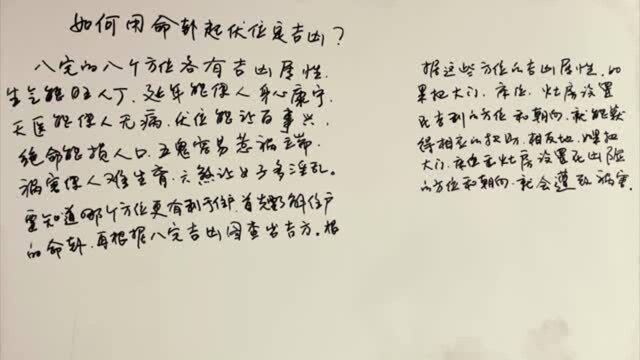 如何用命卦起伏位定吉凶？
八宅的八个方位各有吉凶属性.
生气能旺人丁、延年能保人身心康宁
天医能保人无病.伏位能让百事兴.
绝命能损人口.五鬼容易惹祸端.
祸害保人难生育.六煞让女子多淫乱。
要知道哪个方位更有利于住户.首先要了解住户
的命卦.再根据八宅吉凶图查出吉方。根
据这些方位的吉凶属性.如
果把大门、床位、灶房设置
在吉利的方位和朝向.就能获
得相应的扶助.相反地.如果把
大门.床位或灶房设置在凶险
的方位和朝向.就会遭致祸害.